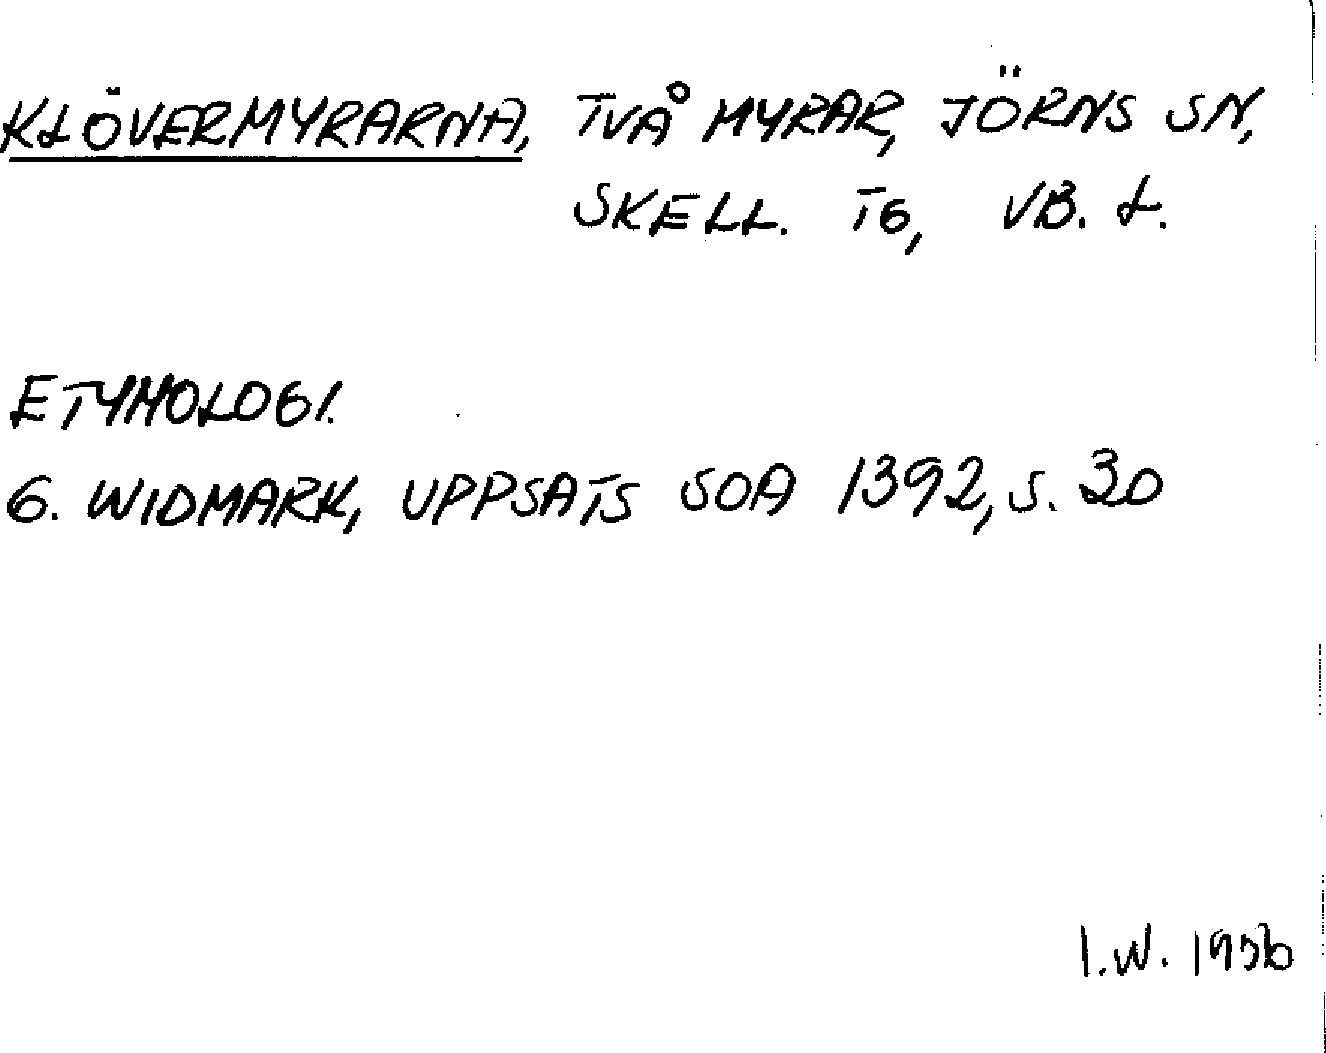 KLÖVERMYRARNA, TVÅ MYRAR, JÖRNS SN,
SKELL. TG, VB. L.
ETYMOLOGI.
G. WIDMARK, UPPSATS SOA 1392, S. 30
I.W. 1956